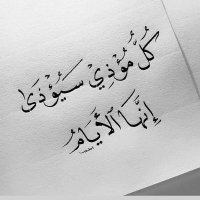 كُلُّ مُؤْذِيْ سَيُؤْذَىٰ
إِنَّهَا ٱلْأَيَّامُ